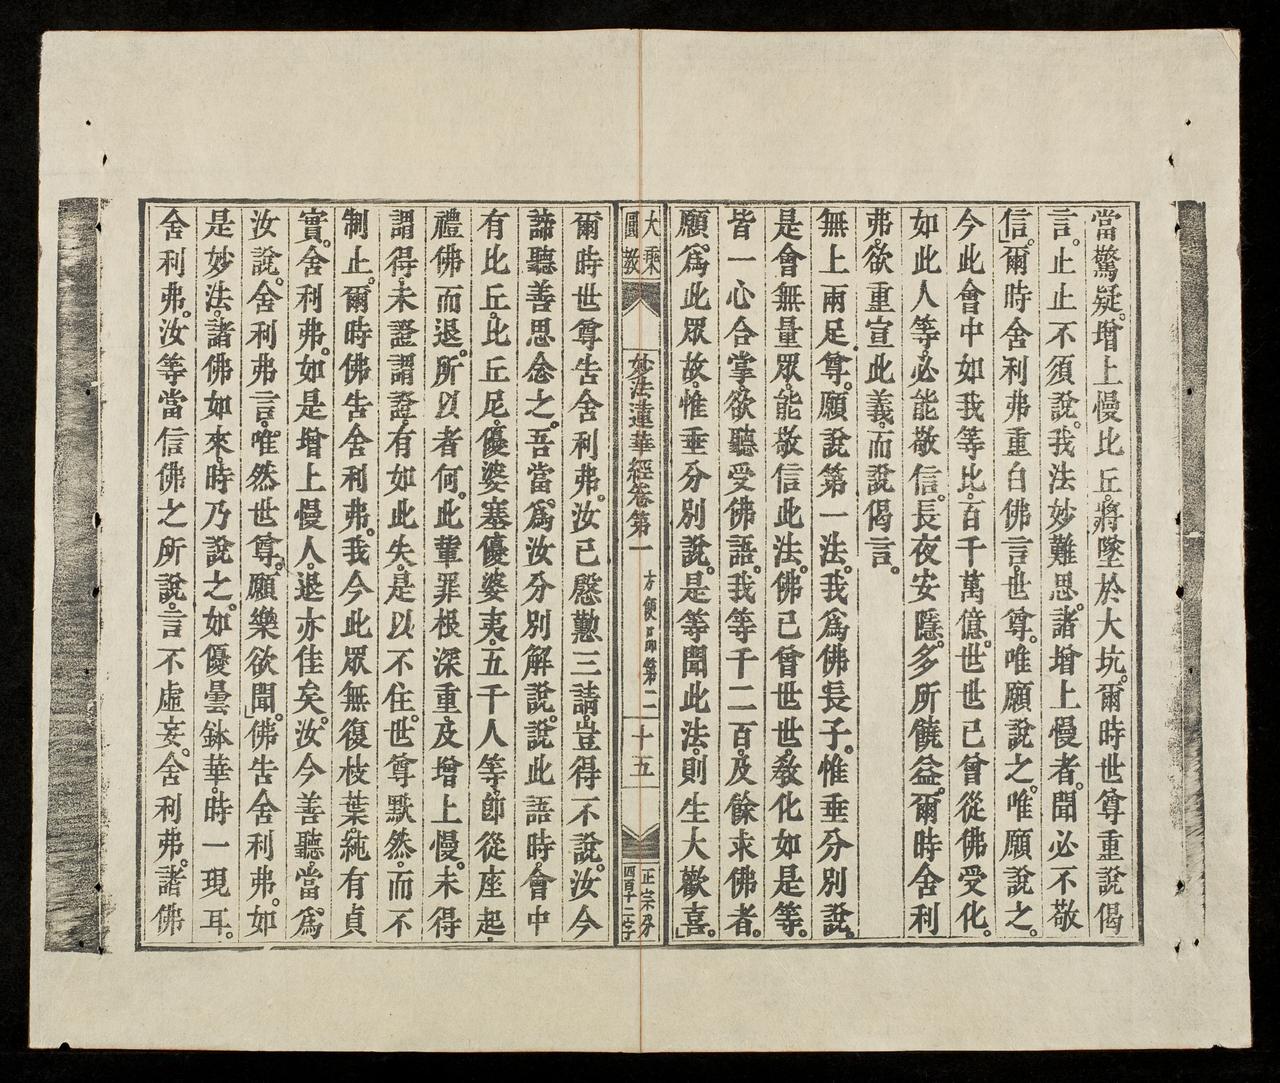 當驚疑。增上慢比丘。將墜於大坑。爾時世尊重說偈
言。止止不須說。我法妙難思。諸增上慢者。聞必不敬
信」爾時舍利弗重白佛言世尊。唯願說之。唯願說之。
今此會中如我等比。百千萬億。世世已曾從佛受化。
如此人等。必能敬信。長夜安隱。多所饒益。爾時舍利
弗。欲重宣此義。而說偈言。
無上兩足尊。願說第一法。我爲佛長子。惟垂分別說。
是會無量眾。能敬信此法。佛已曾世世。敎化如是等。
皆一心合掌。欲聽受佛語。我等千二百。及餘求佛者。
願爲此眾故。惟垂分別說。是等聞此法。則生大歡喜」。
大乘
圓教
妙法蓮華經卷第一
方便品第二
十五
正宗分
四百十二字
爾時世尊告舍利弗。汝已慇懃三請。豈得不說。汝今
諦聽善思念之。吾當爲汝分別解說。說此語時。會中
有比丘。比丘尼。優婆塞優婆夷。五千人等。卽從座起。
禮佛而退。所以者何。此輩罪根深重。及增上慢。未得
謂得。未證謂證。有如此失。是以不住。世尊默然。而不
制止。爾時佛告舍利弗。我今此眾無復枝葉。純有貞
實。舍利弗。如是增上慢人。退亦佳矣。汝今善聽。當爲
汝說。舍利弗言。唯然世尊。願樂欲聞」。佛告舍利弗。如
是妙法。諸佛如來。時乃說之。如優曇鉢華。時一現耳。
舍利弗。汝等當信佛之所說。言不虛妄。舍利弗。諸佛